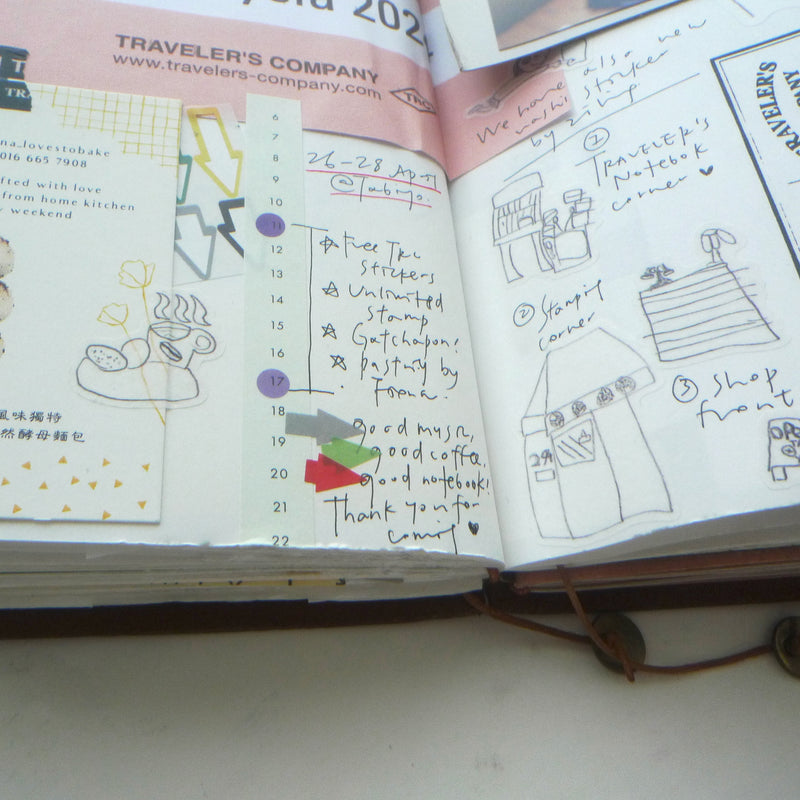 2024
TRAVELER'S COMPANY
www.travelers-company.com
TRC
na.lovestobake
016 665 7908
fted with love
from home kitchen
weekend
風味獨特
然酵母麵包
6
7
8
9
10
11
12
13
14
15
16
17
18
19
20
21
22
26-28 April
@
☆ Free TRC
Stickers
☆ Unlimited
Stamp
☆ Gatchapon!
☆ Pastry by
good music,
good coffee,
good notebook!
Thank you for
coming ♥
We have also new
washi sticker
by
① TRAVELER'S
Notebook
corner ♥
② Stamping
corner
29
③ Shop
front
TRAVELER'S